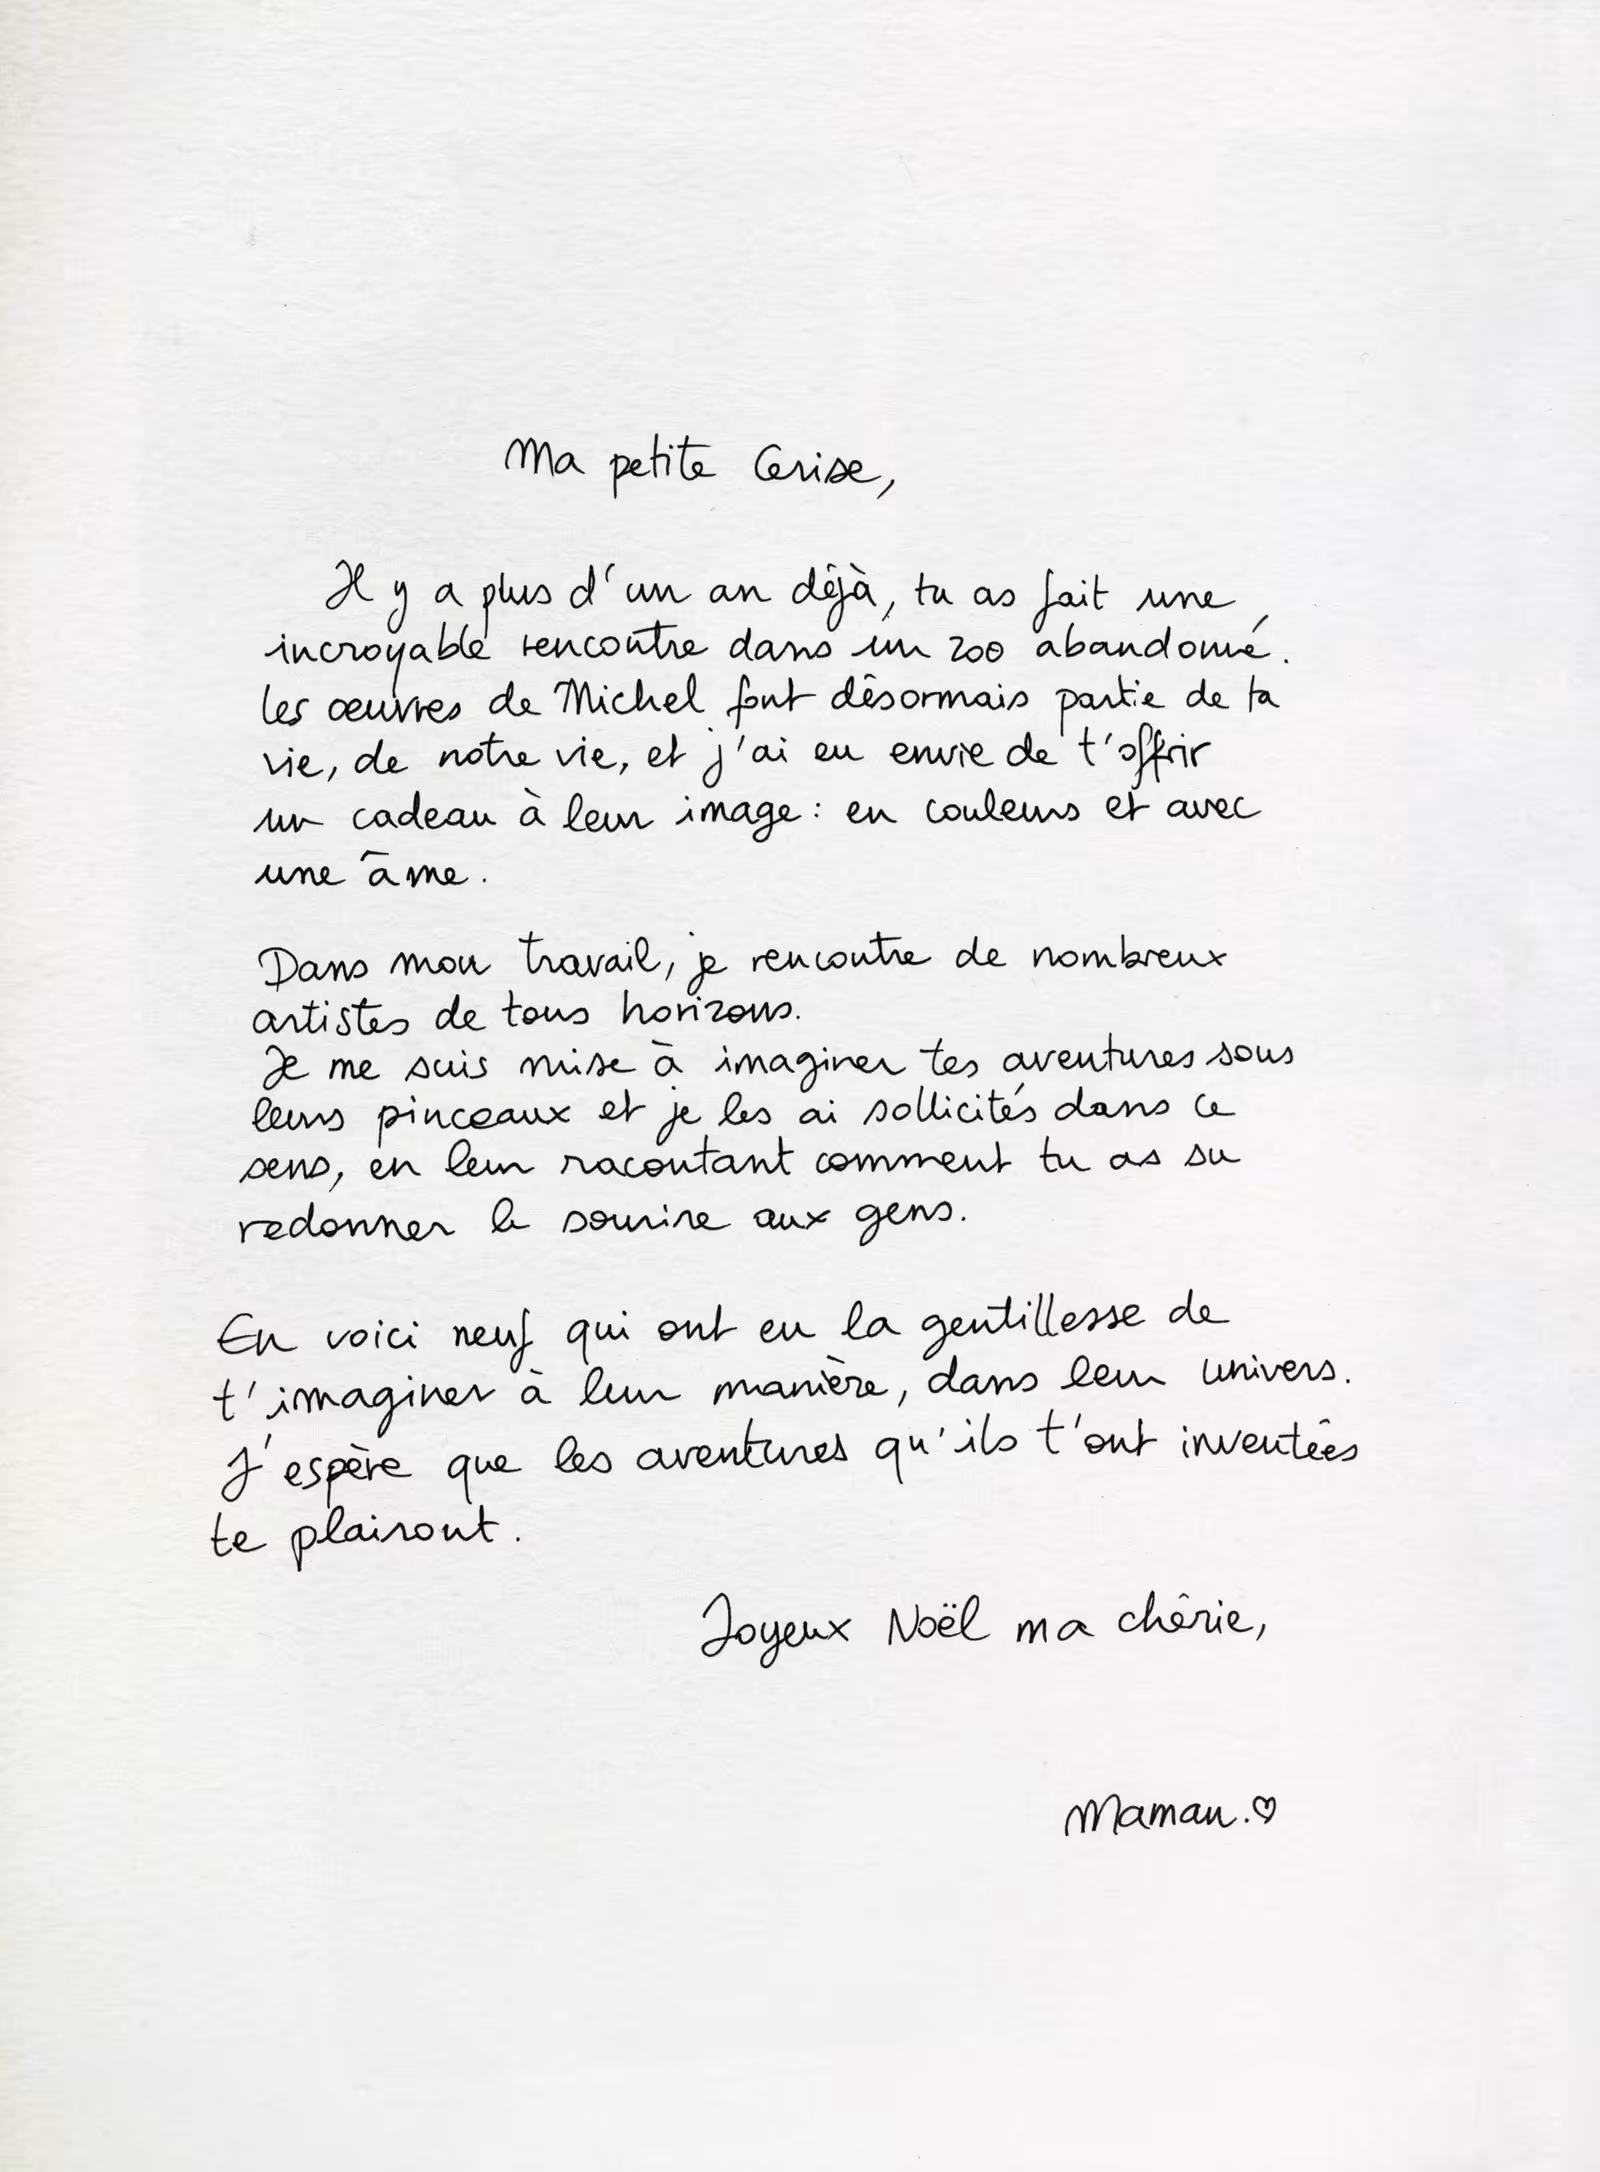 Ma petite Cerise,
Il y a plus d'un an déjà, tu as fait une
incroyable rencontre dans un zoo abandonné.
Les œuvres de Michel font désormais partie de ta
vie, de notre vie, et j'ai eu envie de t'offrir
un cadeau à leur image : en couleurs et avec
une âme.
Dans mon travail, je rencontre de nombreux
artistes de tous horizons.
Je me suis mise à imaginer tes aventures sous
leurs pinceaux et je les ai sollicités dans ce
sens, en leur racontant comment tu as su
redonner le sourire aux gens.
En voici neuf qui ont eu la gentillesse de
t'imaginer à leur manière, dans leur univers.
J'espère que les aventures qu'ils t'ont inventées
te plairont.
Joyeux Noël ma chérie,
Maman.♡